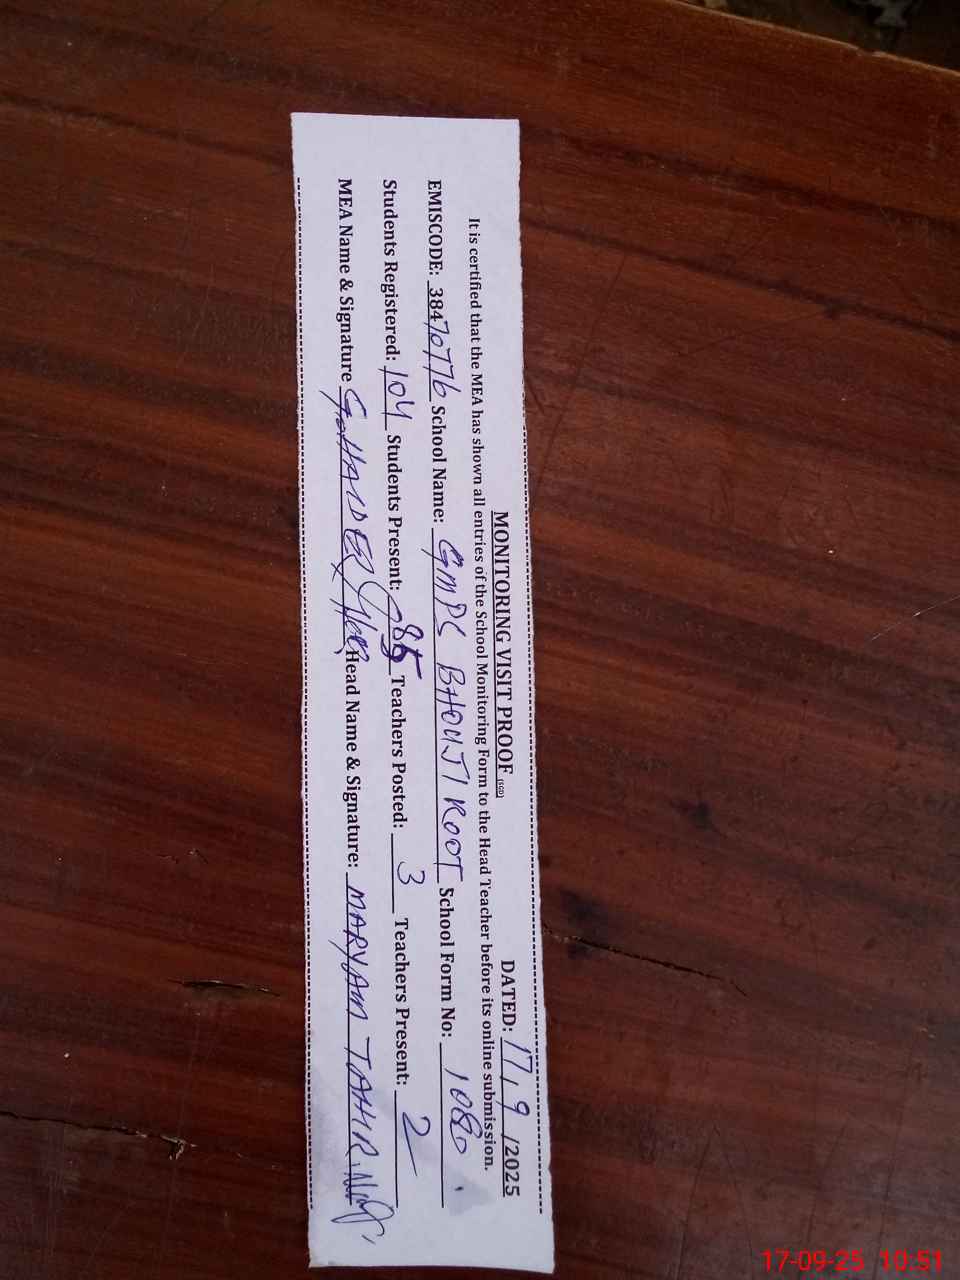 MONITORING VISIT PROOF (SGD) DATED: 17, 9 /2025
It is certified that the MEA has shown all entries of the School Monitoring Form to the Head Teacher before its online submission.
EMISCODE: 38470776 School Name: GMPS BHOUJI ROOT School Form No: 1080
Students Registered: 104 Students Present: 85 Teachers Posted: 3 Teachers Present: 2
MEA Name & Signature G.HAIDER Head Name & Signature: MARYAM TAHIR
17-09-25 10:51